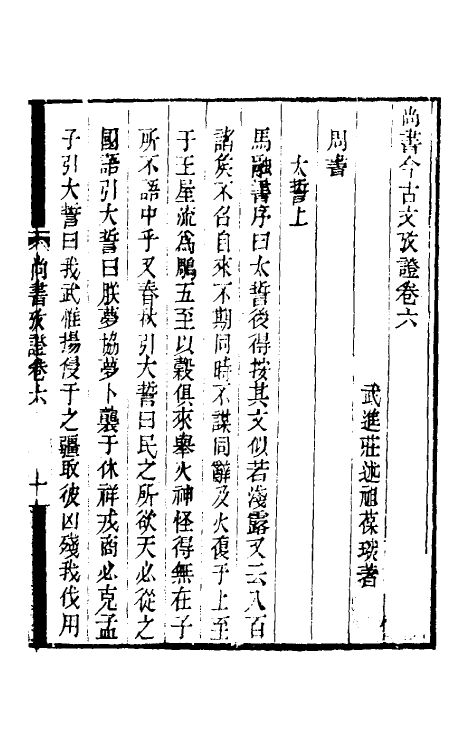 尚書今古文攷證卷六
武進莊述祖葆琛著
周書
太誓上
馬融書序曰太誓後得按其文似若淺露又云八百
諸矦不召自來不期同時不謀同辭及火復于上至
于王屋流爲鵰五至以穀俱來舉火神怪得無在子
所不語中乎又春秋引大誓曰民之所欲天必從之
國語引大誓曰朕夢協朕卜襲于休祥戎商必克孟
子引大誓曰我武惟揚侵于之疆取彼凶殘我伐用
尚書攷證卷六